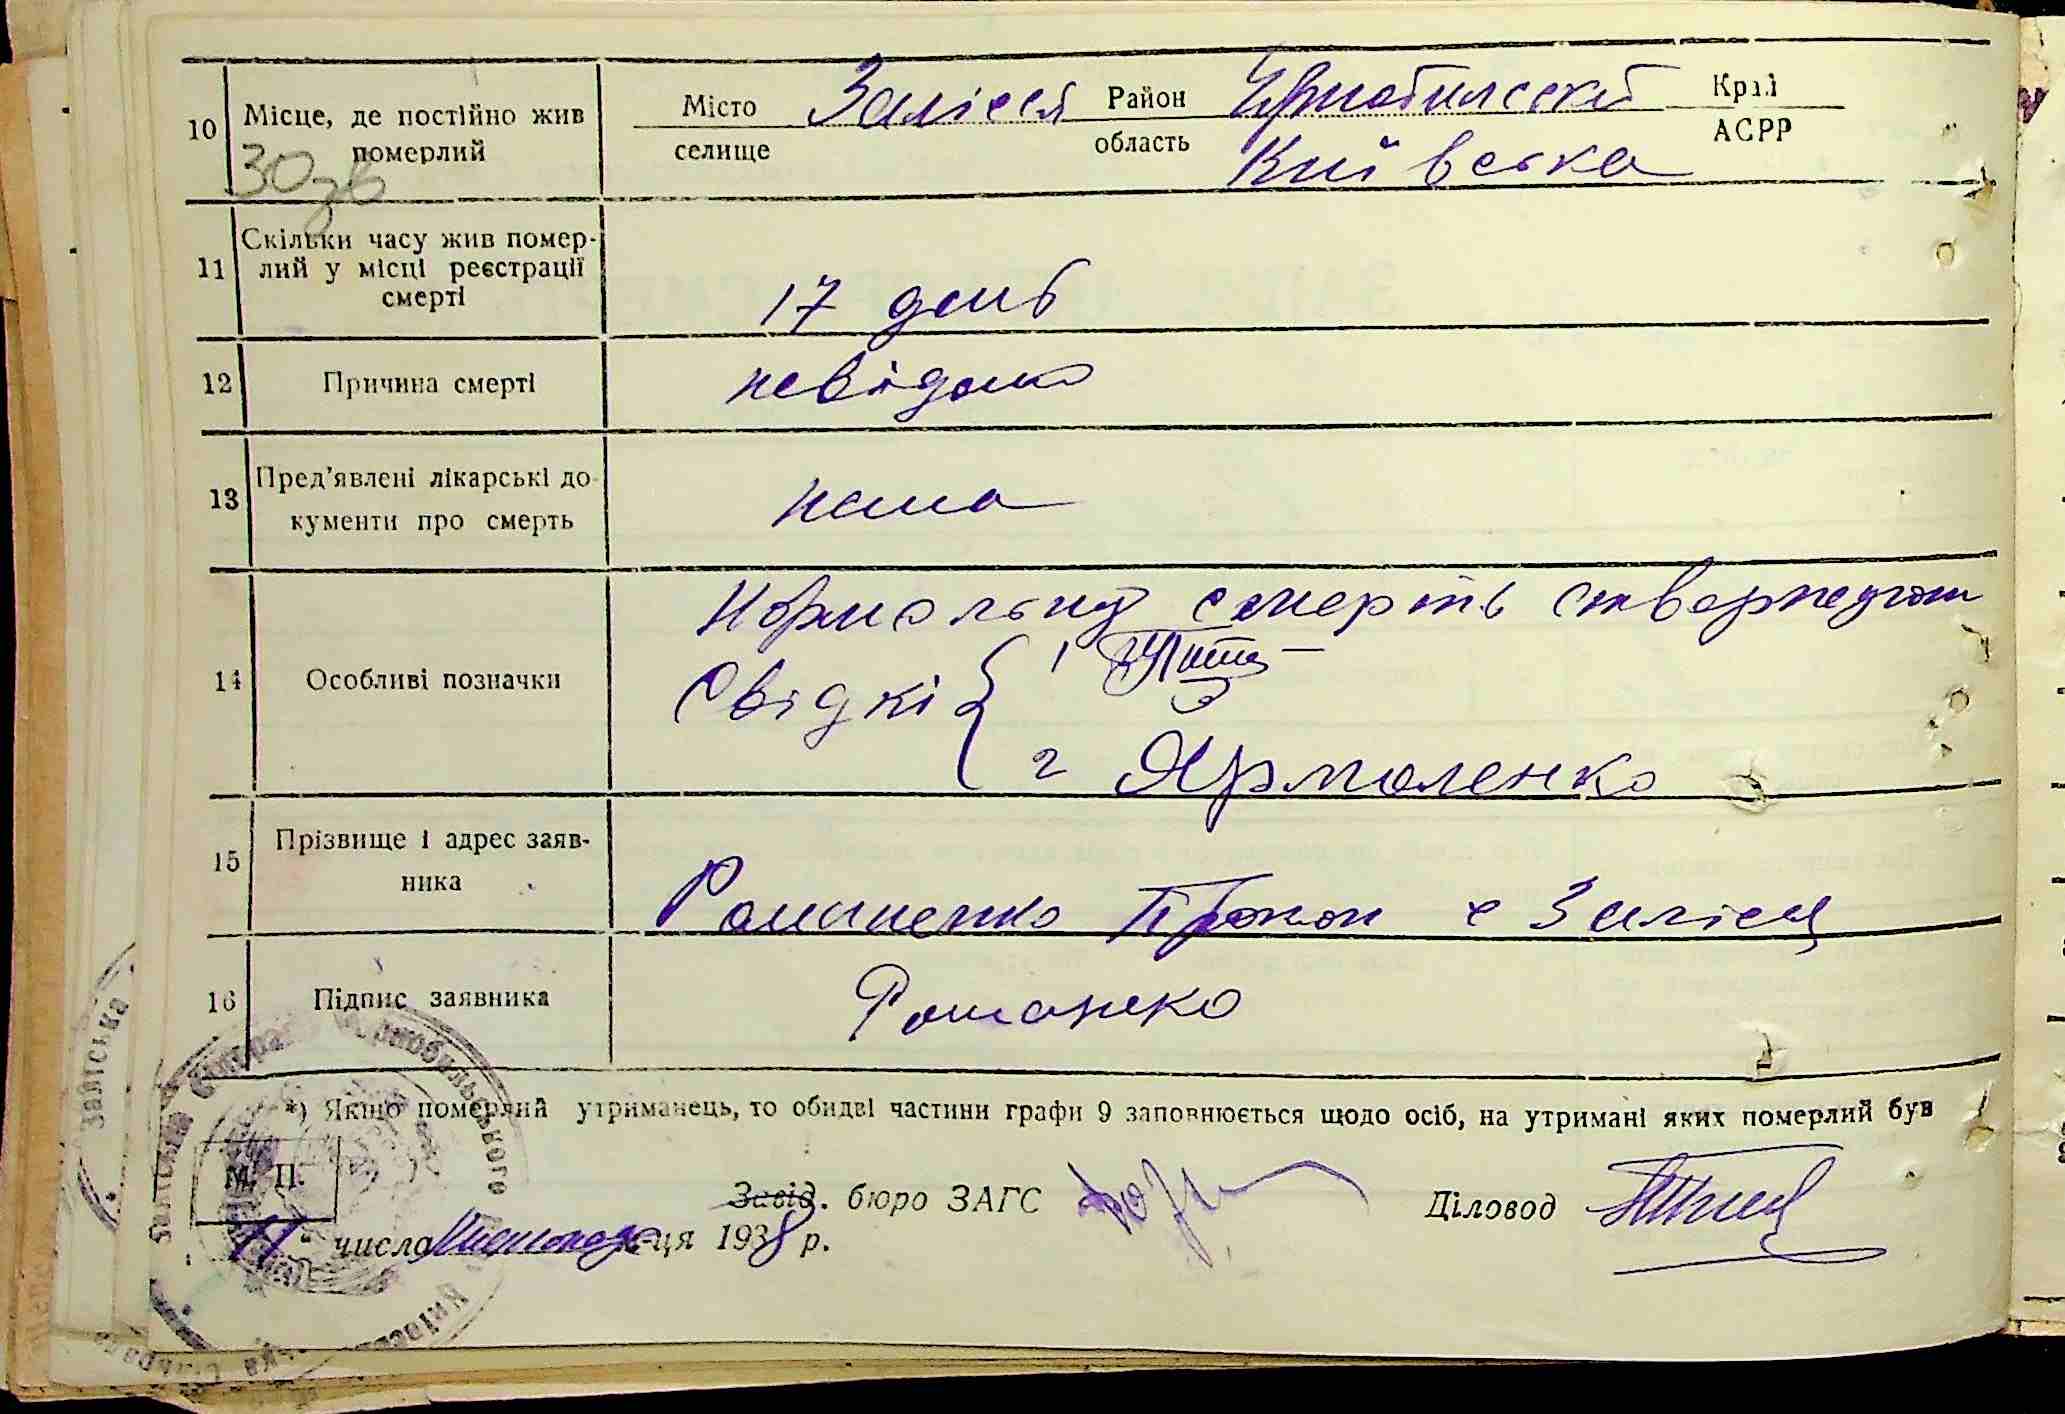 10 Місце, де постійно жив померлий
Місто Залісся Район Чорнобилський Край
селище область Київська АСРР
30зв
11 Скільки часу жив помер-
лий у місці реєстрації
смерті
17 день
12 Причина смерті невідомо
13 Пред'явлені лікарські до-
кументи про смерть
нема
14 Особливі позначки
Нормальну смерть ствержують
Свідкі { 1
2 Ярмоленко
15 Прізвище і адрес заяв-
ника
Романенко Прокоп с Залісся
16 Підпис заявника Романеко
*) Якщо померлий утриманець, то обидві частини графи 9 заповнюється щодо осіб, на утримані яких померлий був
М. П.
Завід. бюро ЗАГС Діловод
"11" числа м-ця 1938 р.
Заліська